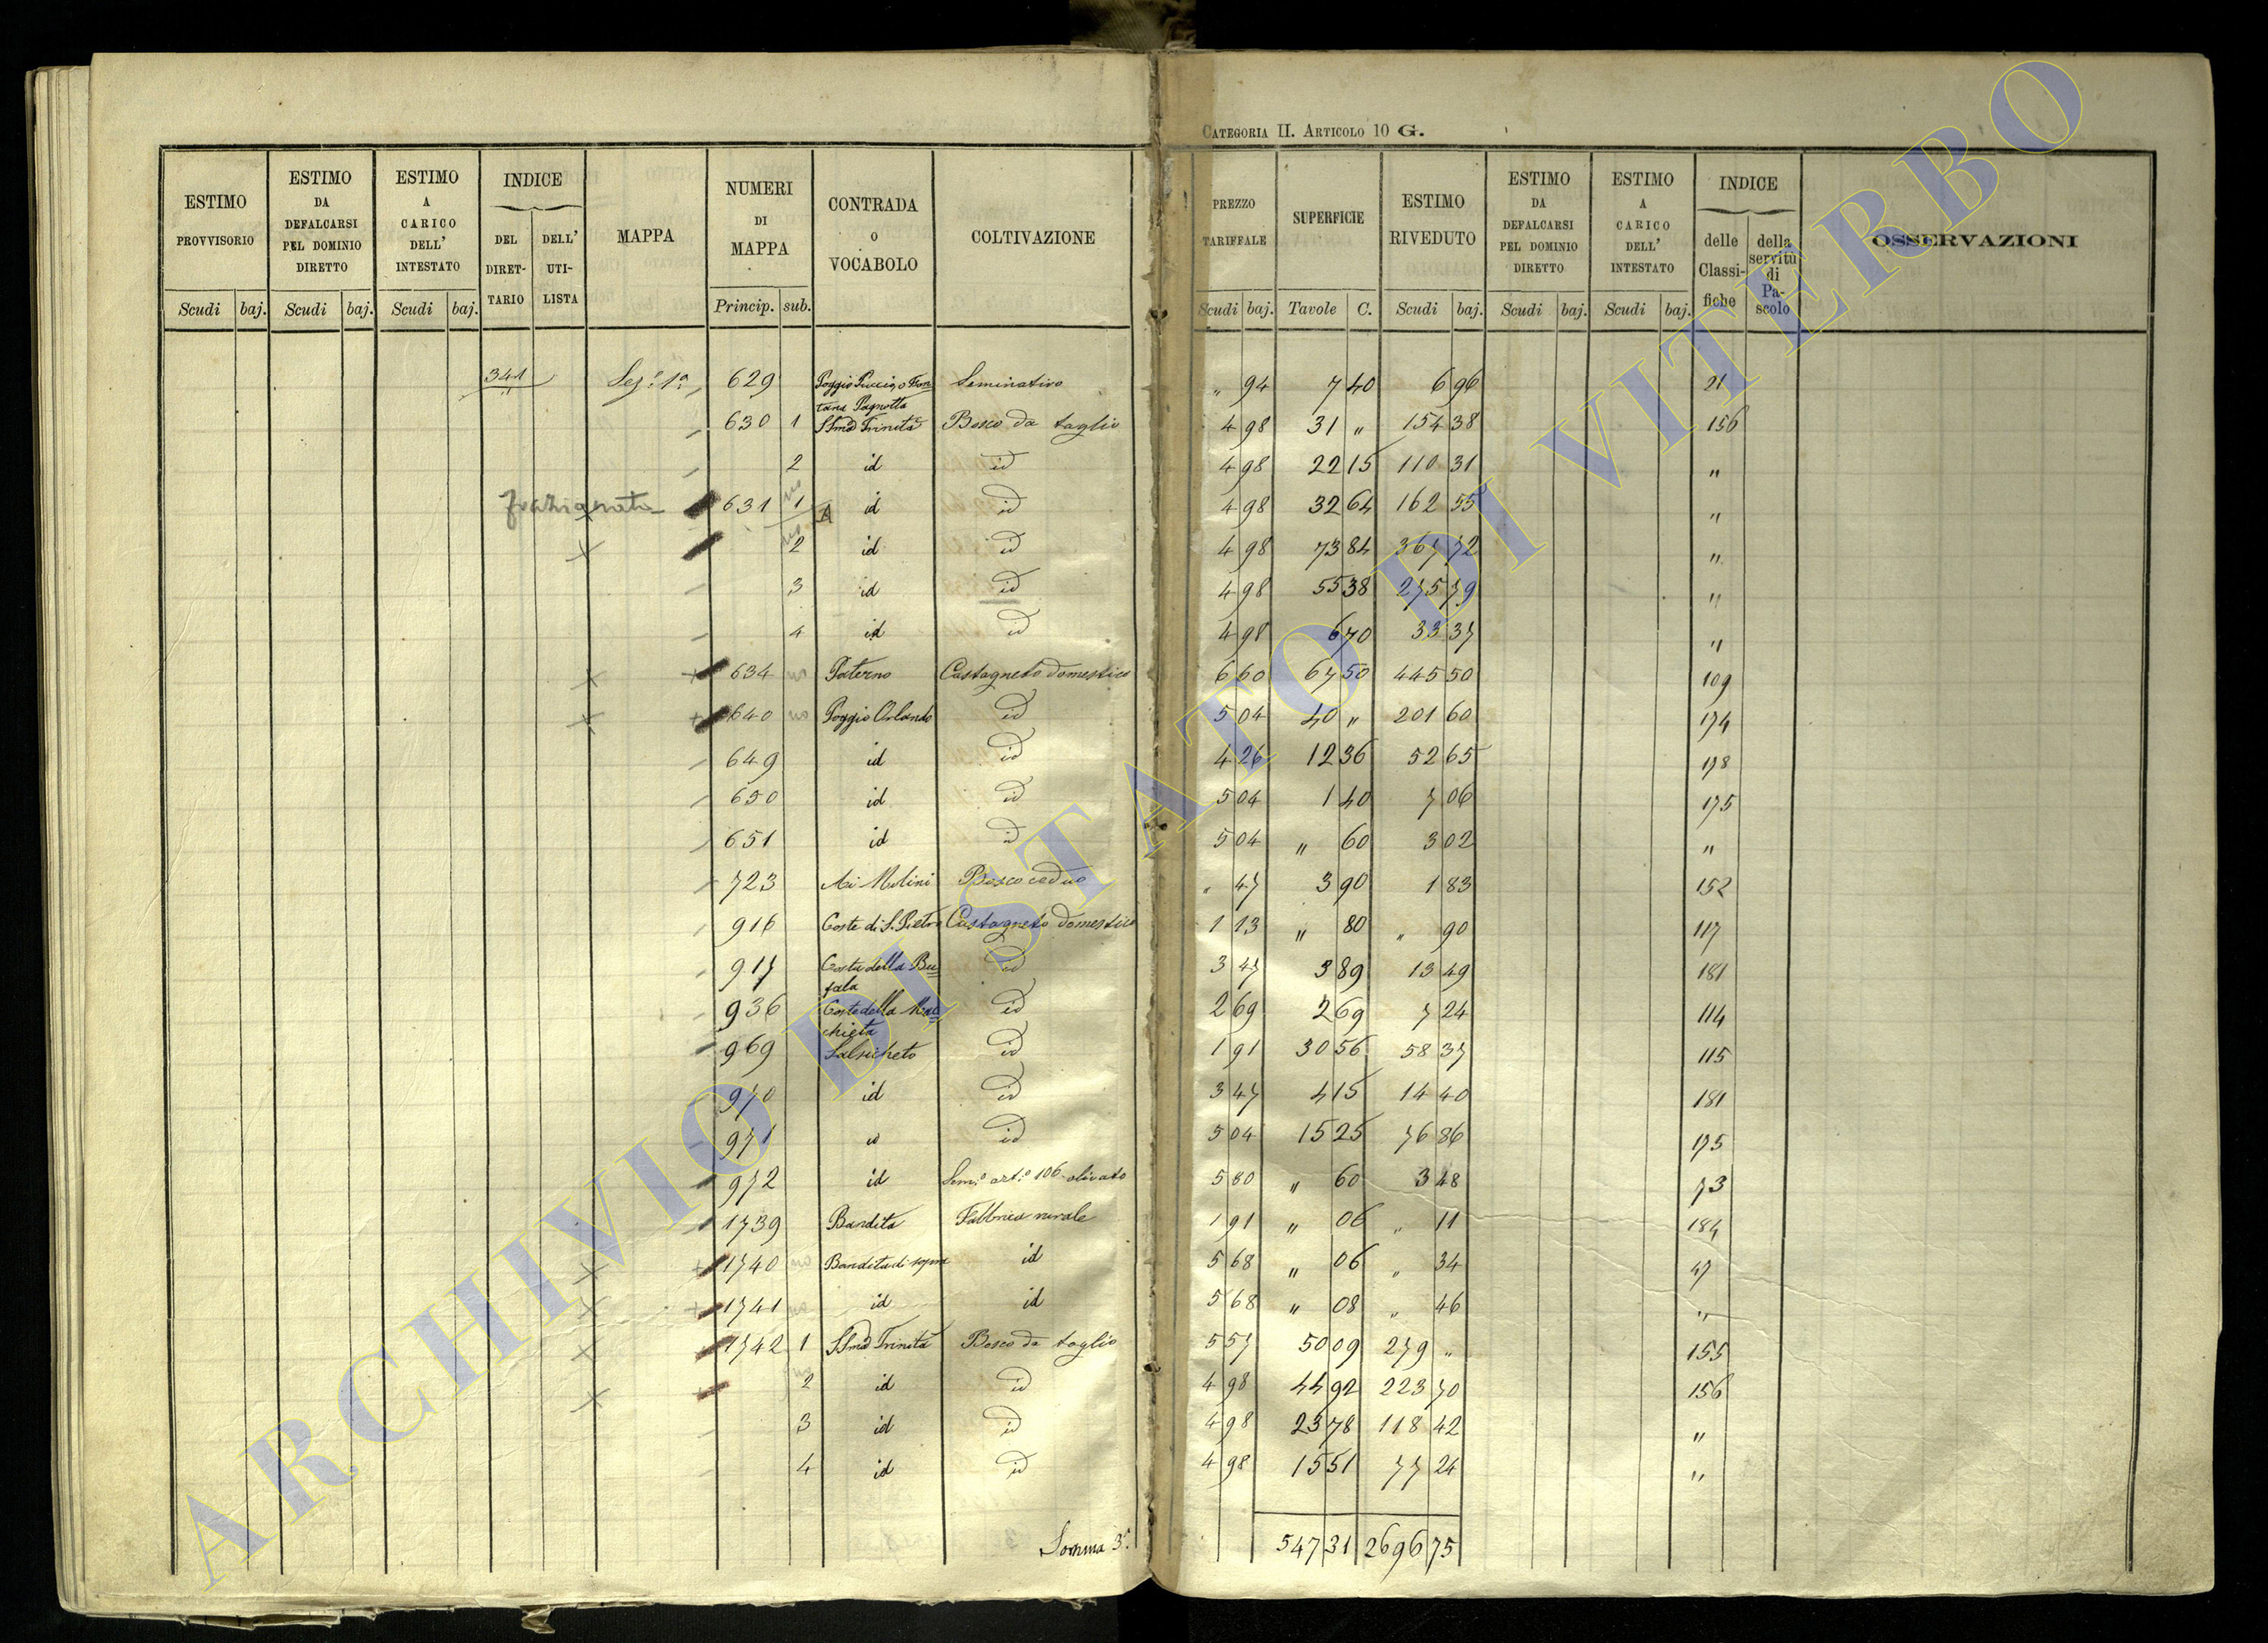 CATEGORIA II. ARTICOLO 10 G.
ESTIMO PROVVISORIO
ESTIMO DA DEFALCARSI PEL DOMINIO DIRETTO
ESTIMO A CARICO DELL' INTESTATO
INDICE
DEL DIRET-TARIO
DELL' UTI-LISTA
MAPPA
NUMERI DI MAPPA
CONTRADA O VOCABOLO
COLTIVAZIONE
PREZZO TARIFFALE
SUPERFICIE
ESTIMO RIVEDUTO
ESTIMO DA DEFALCARSI PEL DOMINIO DIRETTO
ESTIMO A CARICO DELL' INTESTATO
INDICE
delle Classi-fiche
della servitù di Pa-scolo
OSSERVAZIONI
Scudi baj. Scudi baj. Scudi baj. Princip. sub. Scudi baj. Tavole C. Scudi baj. Scudi baj. Scudi baj.
341 Sez.e 1a 629 Poggio Puccio, o Fon= Seminativo " 94 7 40 6 96 21
tana Pagnotta
630 1 SSma Trinità Bosco da taglio 4 98 31 " 154 38 156
2 id id 4 98 22 15 110 31 "
frazionata 631 1 A id id 4 98 32 64 162 55 "
2 id id 4 98 73 84 367 72 "
3 id id 4 98 55 38 275 79 "
4 id id 4 98 6 70 33 37 "
634 Paterno Castagneto domestico 6 60 67 50 445 50 109
640 Poggio Orlando id 5 04 40 " 201 60 174
649 id id 4 26 12 36 52 65 178
650 id id 5 04 1 40 7 06 175
651 id id 5 04 " 60 3 02 "
723 Ai Molini Bosco ceduo " 47 3 90 1 83 152
916 Coste di S. Pietro Castagneto domestico 1 13 " 80 " 90 117
917 Costa della Bu= id 3 47 3 89 13 49 181
fala
936 Coste della Mac= id 2 69 2 69 7 24 114
chieta
969 Salsicheto id 1 91 30 56 58 37 115
970 id id 3 47 4 15 14 40 181
971 id id 5 04 15 25 76 86 175
972 id Sem.o art.o 106 olivato 5 80 " 60 3 48 73
1739 Bandita Fabbrica rurale 1 91 " 06 " 11 184
1740 Bandita di sopra id 5 68 " 06 " 34 47
1741 id id 5 68 " 08 " 46 "
1742 1 SSma Trinità Bosco da taglio 5 57 50 09 279 " 155
2 id id 4 98 44 92 223 70 156
3 id id 4 98 23 78 118 42 "
4 id id 4 98 15 51 77 24 "
Somma 3a 547 31 2696 75
ARCHIVIO DI STATO DI VITERBO